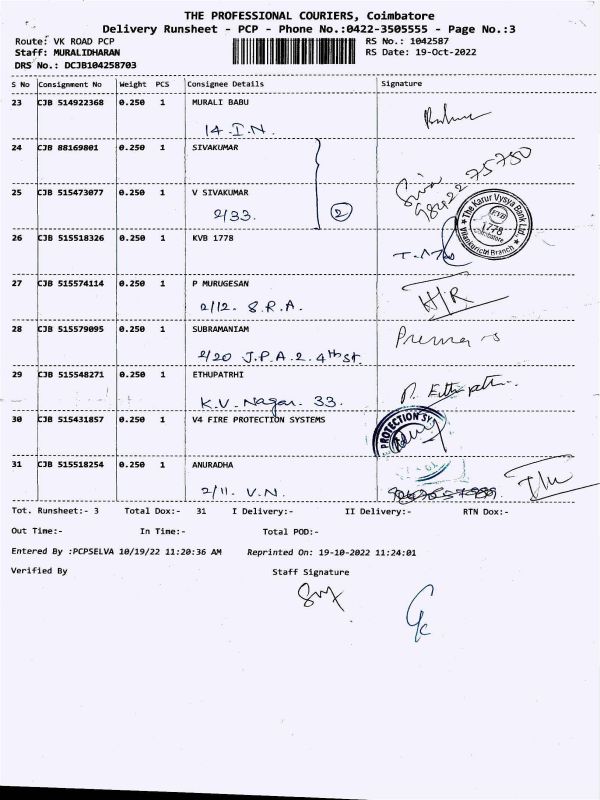 THE PROFESSIONAL COURIERS, Coimbatore
Delivery Runsheet - PCP - Phone No.:0422-3505555 - Page No.:3
Route: VK ROAD PCP RS No.: 1042587
Staff: MURALIDHARAN RS Date: 19-Oct-2022
DRS No.: DCJB104258703
S No Consignment No Weight PCS Consignee Details Signature
23 CJB 514922368 0.250 1 MURALI BABU
14. I.N.
24 CJB 88169801 0.250 1 SIVAKUMAR
Siva
98422 75750
25 CJB 515473077 0.250 1 V SIVAKUMAR
2/33. 2
26 CJB 515518326 0.250 1 KVB 1778
The Karur Vysya Bank Ltd.
KVB
1778
Coimbatore
Vilankurichi Branch
27 CJB 515574114 0.250 1 P MURUGESAN
2/12. S.R.A. H/R
28 CJB 515579095 0.250 1 SUBRAMANIAM
2/20 J.P.A.2. 4th st. Prema
29 CJB 515548271 0.250 1 ETHUPATRHI
K.V. Nagar. 33.
30 CJB 515431857 0.250 1 V4 FIRE PROTECTION SYSTEMS
PROTECTION SY
31 CJB 515518254 0.250 1 ANURADHA
2/11. V.N.
Tot. Runsheet:- 3 Total Dox:- 31 I Delivery:- II Delivery:- RTN Dox:-
Out Time:- In Time:- Total POD:-
Entered By :PCPSELVA 10/19/22 11:20:36 AM Reprinted On: 19-10-2022 11:24:01
Verified By Staff Signature